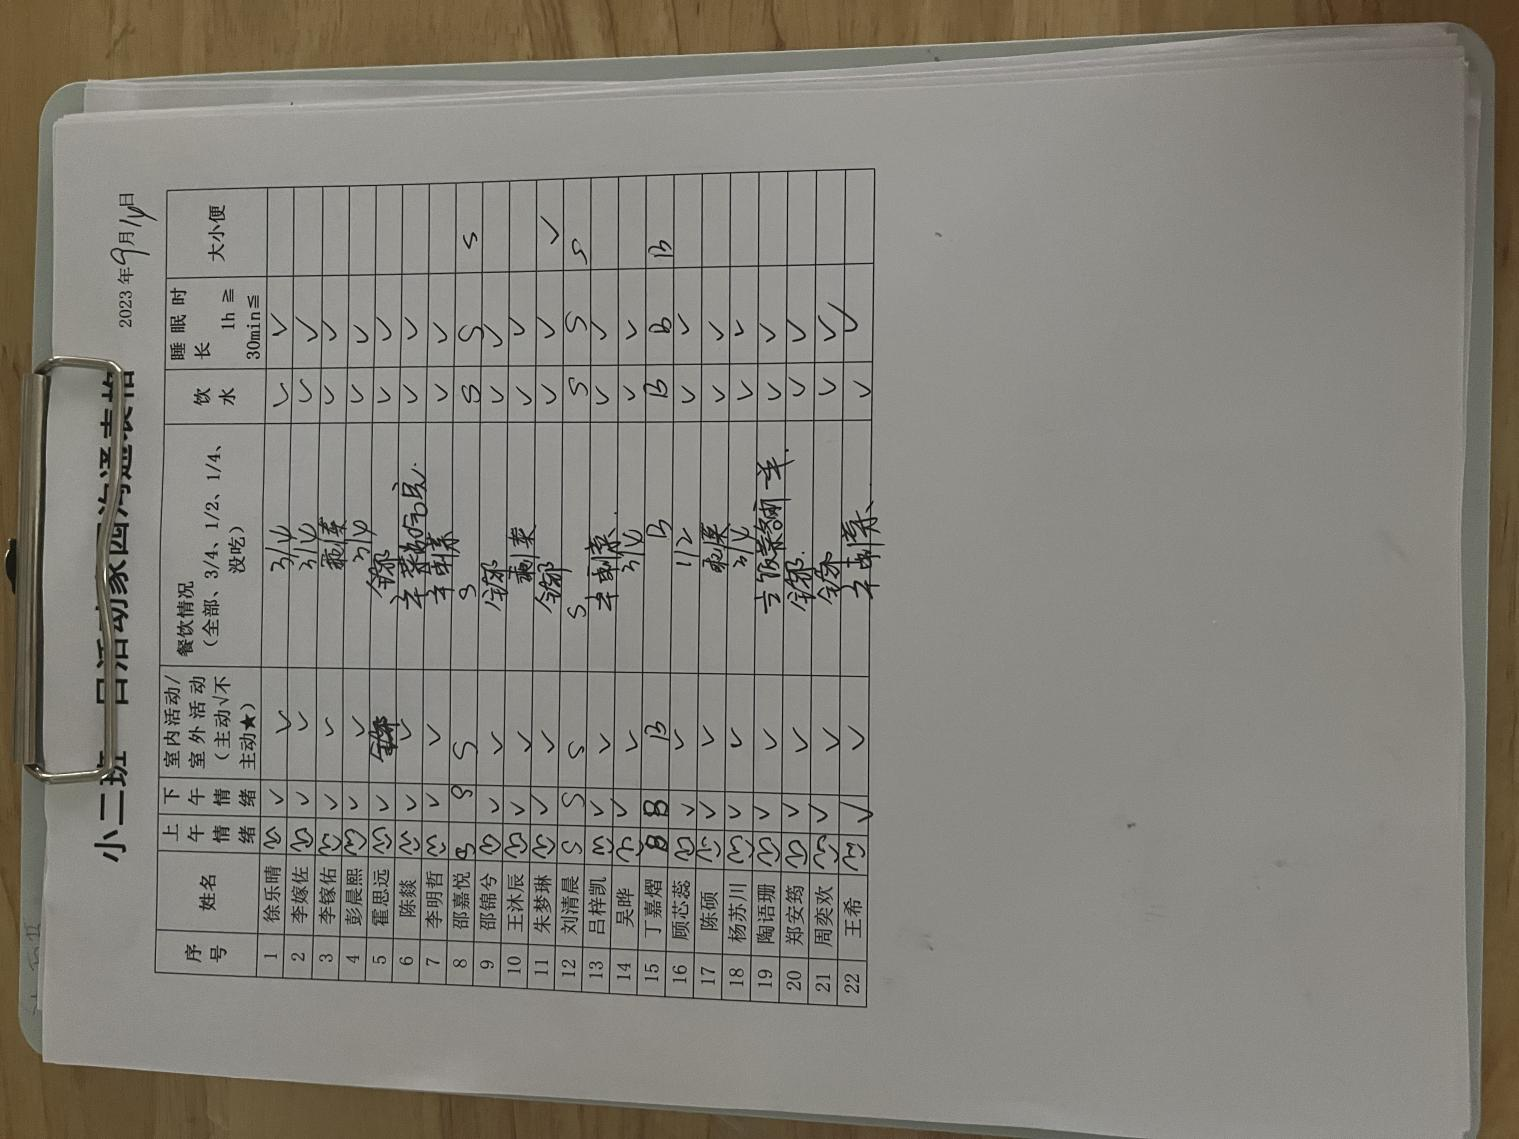 小二班一日活动家园沟通表格
2023年9月14日
序号 姓名 上午情绪 下午情绪 室内活动/室外活动（主动√不主动★） 餐饮情况（全部、3/4、1/2、1/4、没吃） 饮水 睡眠时长 1h≧ 30min≦ 大小便
1 徐乐晴 √ √ 3/4 √ √
2 李嫁佐 √ √ 3/4 √ √
3 李镓佑 √ √ 剩菜 √ √
4 彭晨熙 √ √ 3/4 √ √
5 霍思远 √ 全部 √ √
6 陈燚 √ √ √ √
7 李明哲 √ √ 半剩菜 √ √
8 邵嘉悦 S S S S S S S
9 邵锦兮 √ √ 全部 √ √
10 王沐辰 √ √ 剩菜 √ √
11 朱梦琳 √ √ 全部 √ √ √
12 刘清晨 S S S S S S S
13 吕梓凯 √ √ 半剩菜 √ √
14 吴晔 √ √ 3/4 √ √
15 丁嘉熠 B B B B B B B
16 顾芯蕊 √ √ 1/2 √ √
17 陈硕 √ √ 剩菜 √ √
18 杨苏川 √ √ 3/4 √ √
19 陶语珊 √ √ √ √
20 郑安筠 √ √ 全部 √ √
21 周奕欢 √ √ 全部 √ √
22 王希 √ √ 半剩菜 √ √